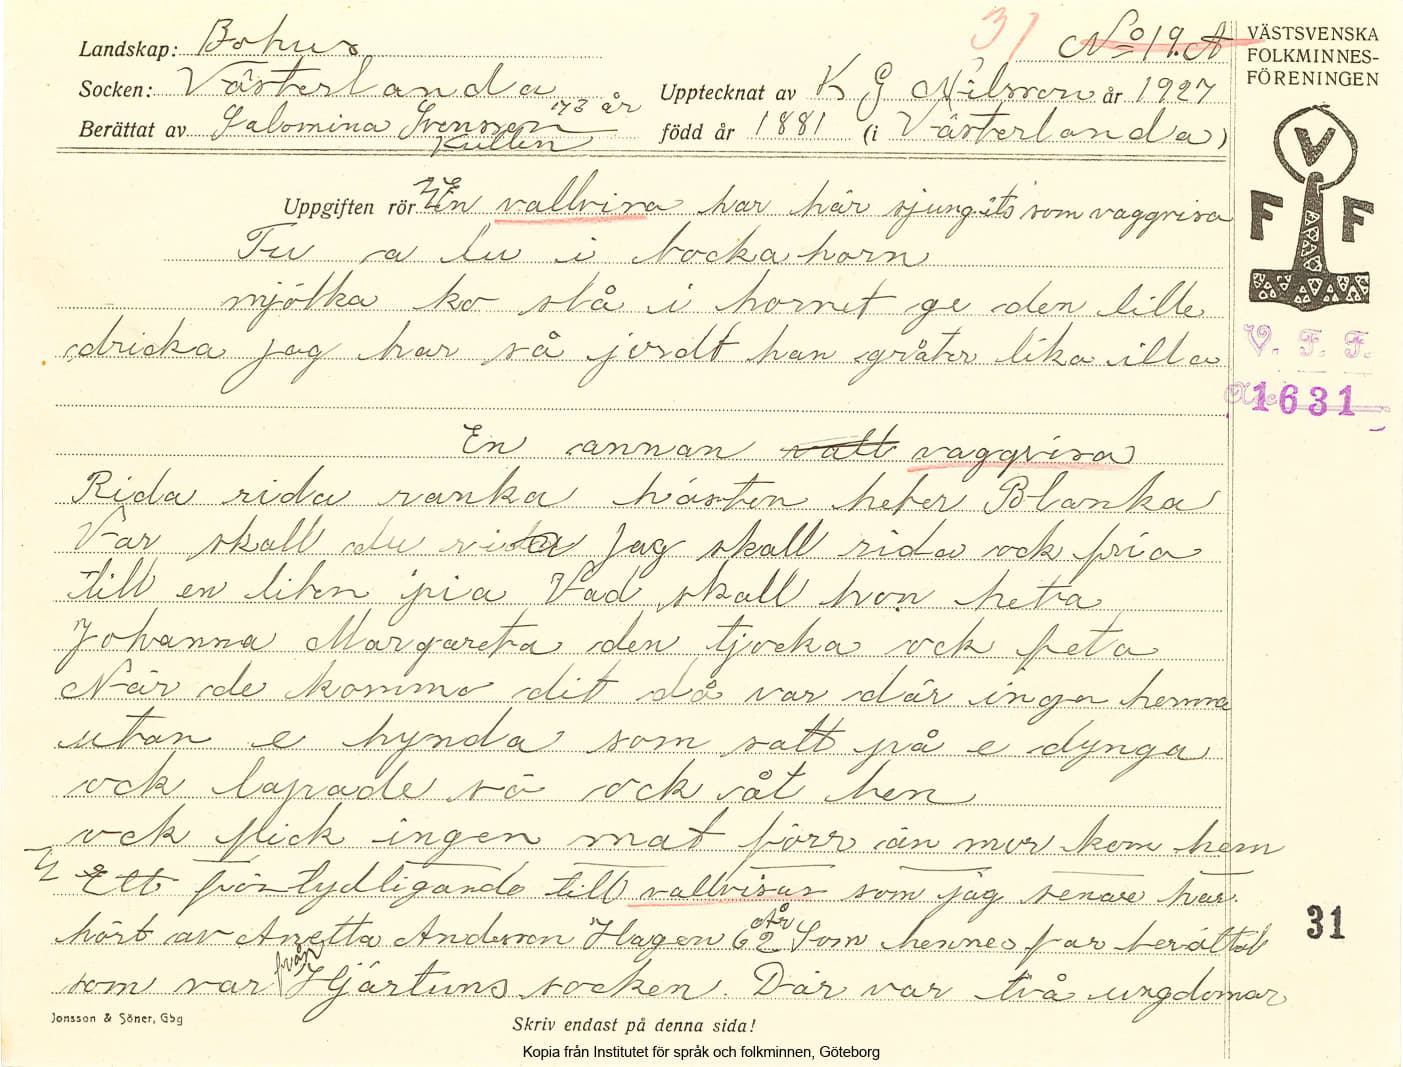 31 No 19. A
Landskap: Bohus
Socken: Västerlanda
Upptecknat av K G Nilsson år 1927
Berättat av Salomina Svensson 73 år
Kullen
född år 1881 (i Västerlanda)
VÄSTSVENSKA
FOLKMINNES-
FÖRENINGEN
V
F F
V. F. F.
1631
Uppgiften rör En vallvisa har här sjungits som vaggvisa
Tu a lu i bockahorn
mjölka ko slå i hornet ge den lille
dricka jag har så jordt han gråter lika illa
En annan vall vaggvisa
Rida rida ranka hästen heter Blanka
Var skall du rida Jag skall rida ock fria
till en liten pia Vad skall hon heta
Johanna Margareta den tjocka ock feta
När de komma dit då var där inga hemma
utan e hynda som satt på e dynga
ock lapade sö ock åt hen
ock fick ingen mat förr än mor kom hem
Ett förtydligande till vallvisan som jag senare har
hört av Anetta Anderson Hagen 62 år Som hennes far berättat
som var från Hjärtums socken. Där var två ungdomar
31
Jonsson & Söner, Gbg
Skriv endast på denna sida!
Kopia från Institutet för språk och folkminnen, Göteborg